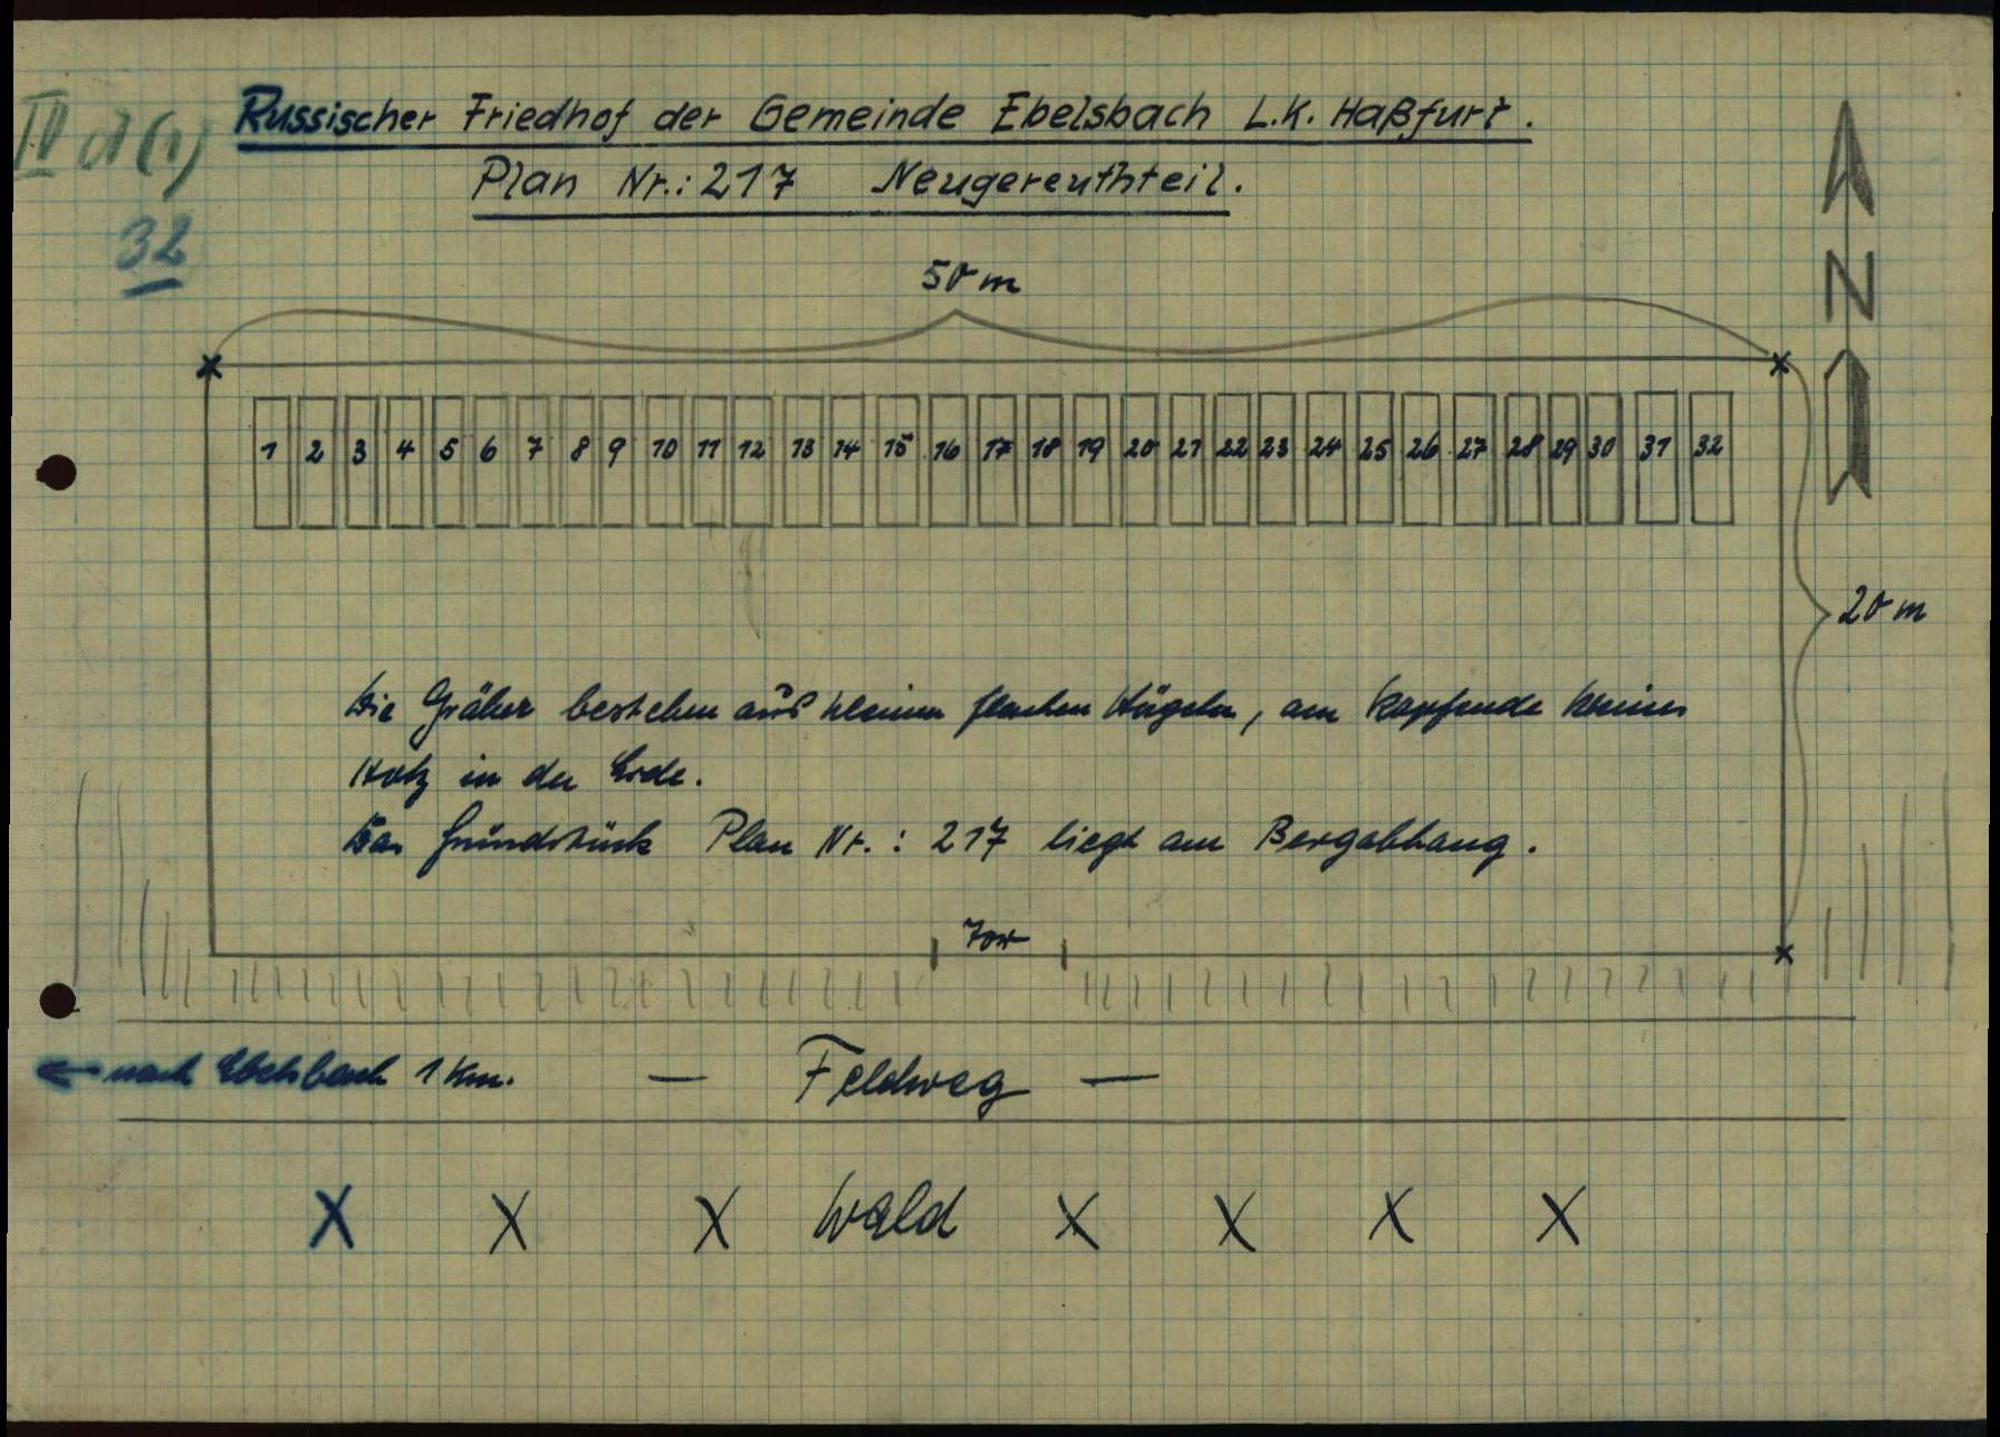 IV d (1)
32
Russischer Friedhof der Gemeinde Ebelsbach L.K. Haßfurt.
Plan Nr.: 217 Neugereuthteil.
50 m
N
1 2 3 4 5 6 7 8 9 10 11 12 13 14 15 16 17 18 19 20 21 22 23 24 25 26 27 28 29 30 31 32
20 m
Die Gräber bestehen aus kleinen flachen Hügeln, am Kopfende kleines
Holz in der Erde.
Das Grundstück Plan Nr.: 217 liegt am Bergabhang.
Tor
← nach Ebelsbach 1 Km. — Feldweg —
X X X Wald X X X X